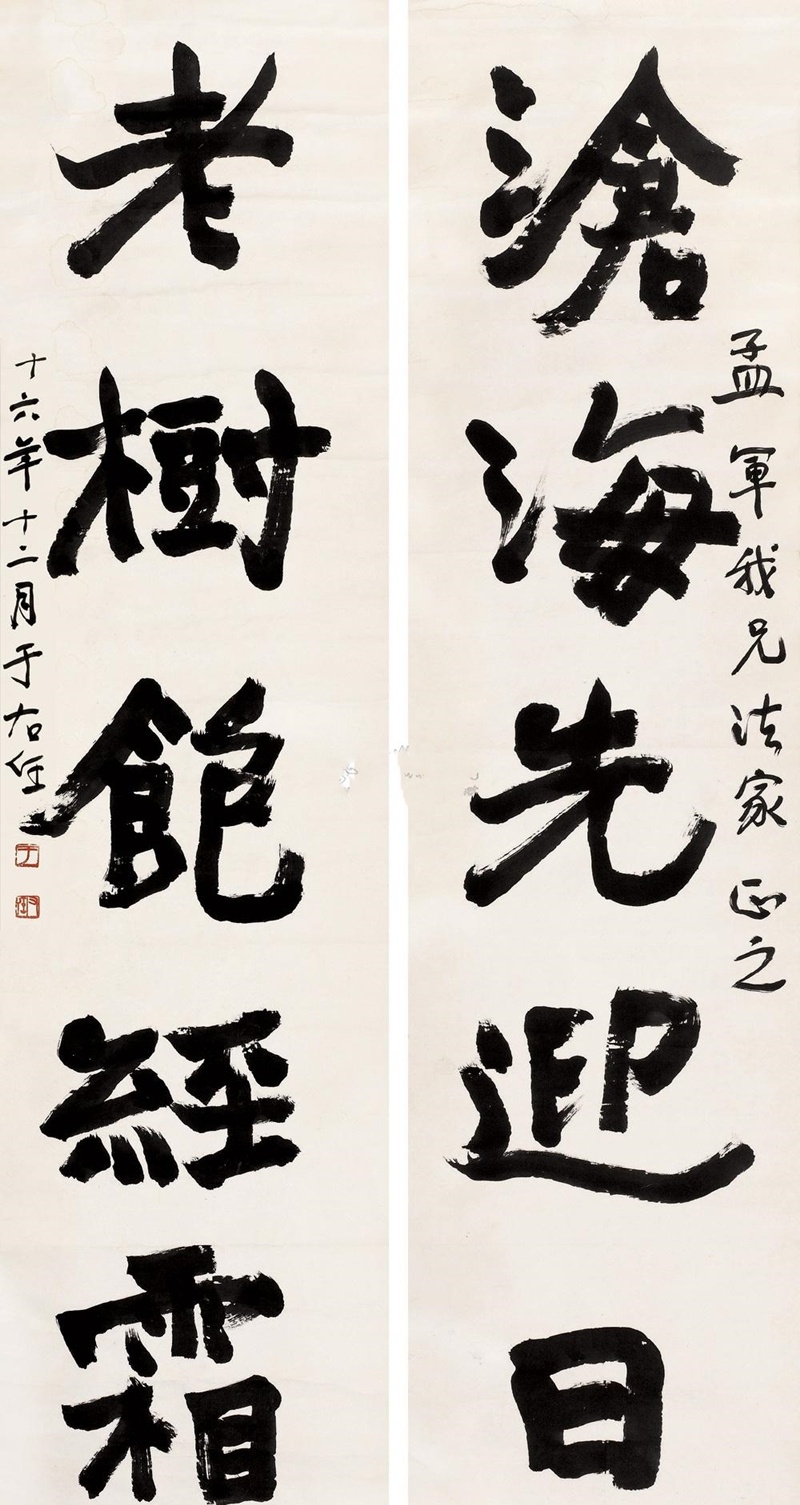 滄海先迎日
孟軍我兄法家正之
老樹飽經霜
十六年十二月于右任